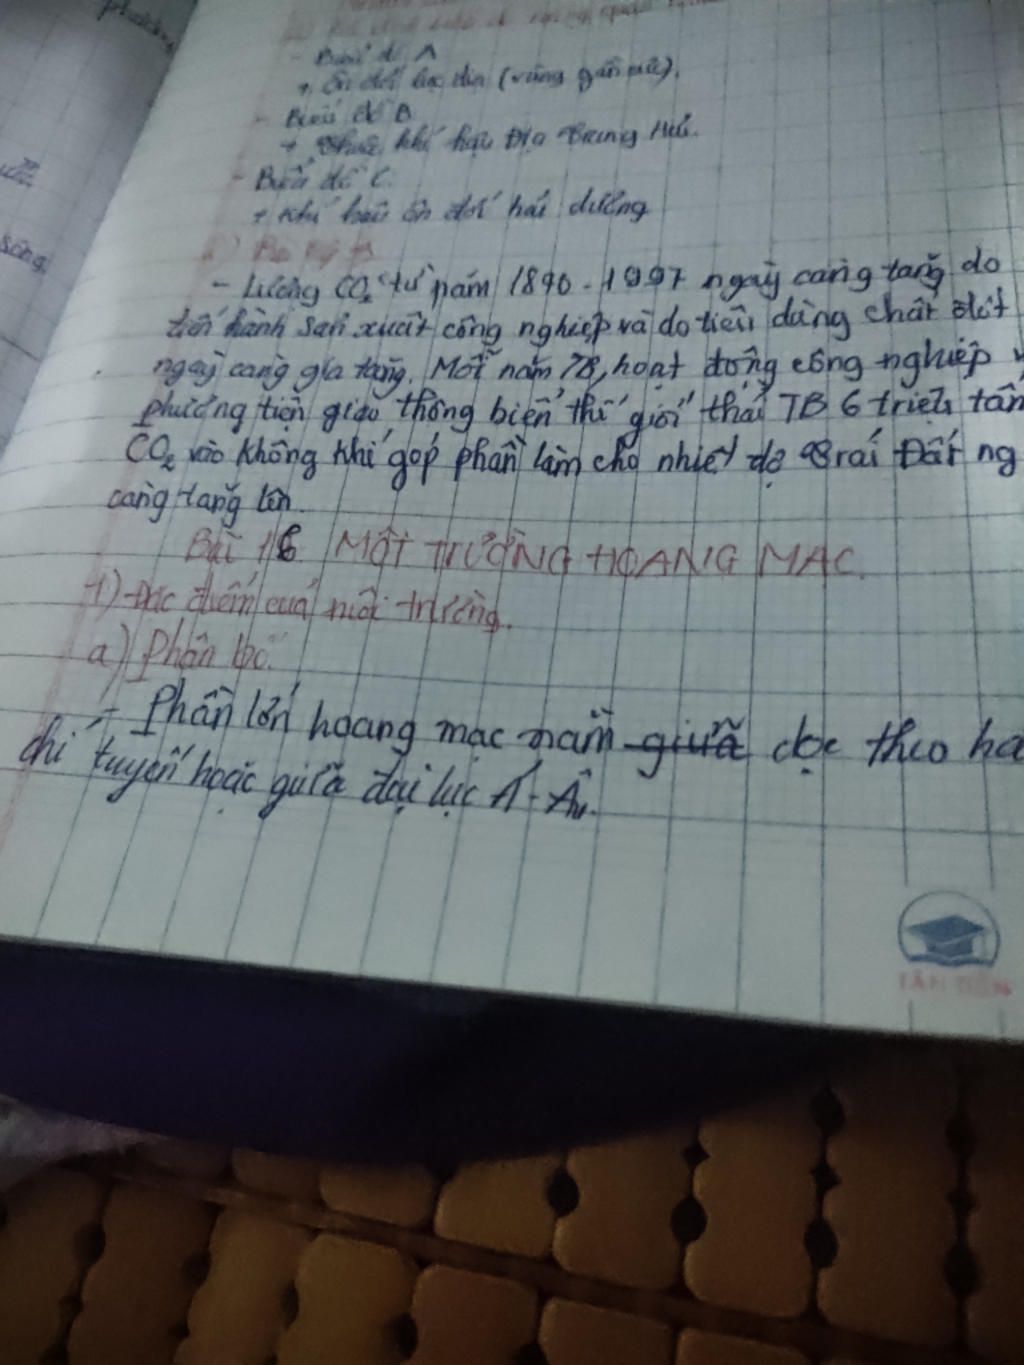 phương
- Biểu đồ A
+ Ôn đới lục địa (vùng gần cực).
- Biểu đồ B
+ Thuộc khí hậu Địa Trung Hải.
- Biểu đồ C.
+ Khí hậu ôn đới hải dương
- Lượng CO₂ từ năm 1840 - 1997 ngày càng tăng do
tiến hành sản xuất công nghiệp và do tiêu dùng chất đốt
ngày càng gia tăng. Mỗi năm TB, hoạt động công nghiệp v
phương tiện giao thông biển thế giới thải TB 6 triệu tấn
CO₂ vào không khí góp phần làm cho nhiệt độ Trái Đất ng
càng tăng lên.
Bài 16 MÔI TRƯỜNG HOANG MẠC.
1) Đặc điểm của môi trường.
a) Phân bố.
- Phần lớn hoang mạc nằm giữa dọc theo ha
chí tuyến hoặc giữa đại lục Á - Âu.
sông